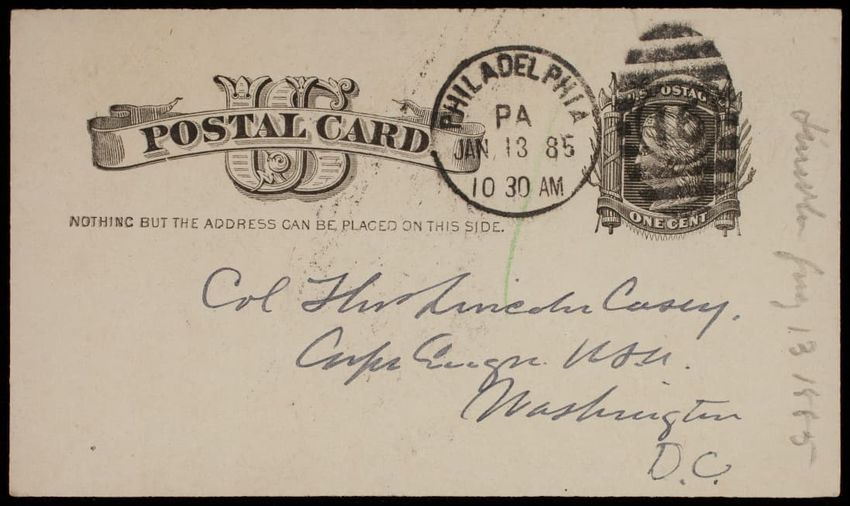 US
POSTAL CARD
NOTHING BUT THE ADDRESS CAN BE PLACED ON THIS SIDE.
PHILADELPHIA
PA
JAN 13 85
10 30 AM
U.S. POSTAL
ONE CENT
Col Thos Lincoln Casey,
Corps Engrs. USA.
Washington
D.C.
Jany 13 1885